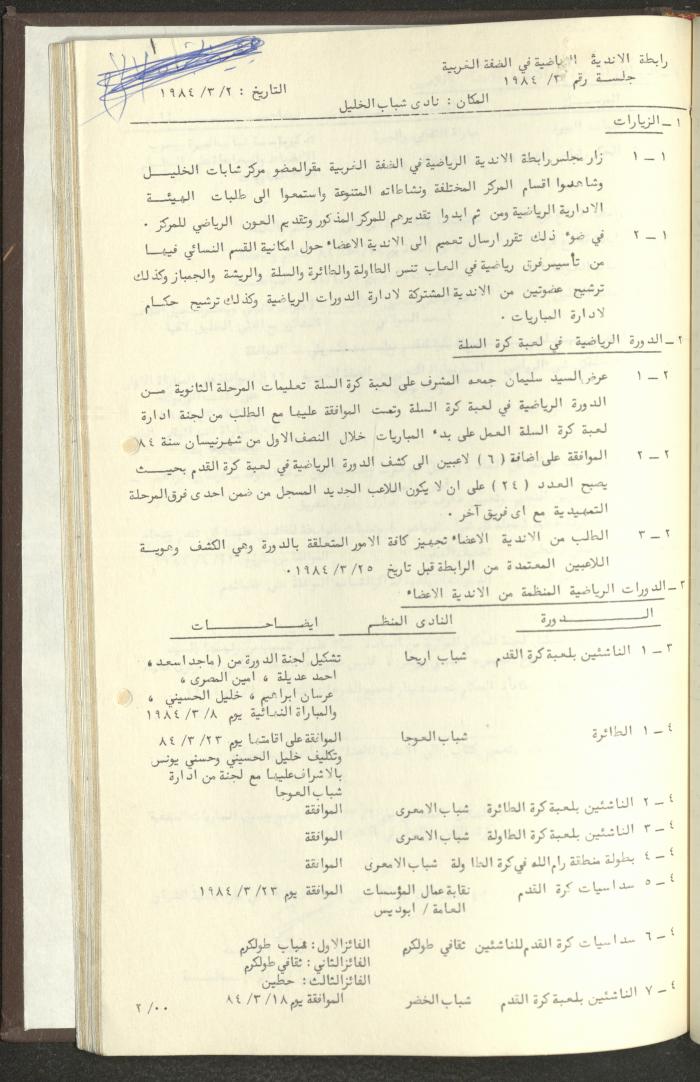 ١
رابطة الاندية الرياضية في الضفة الغربية
جلسة رقم ٣/ ١٩٨٤
التاريخ : ١٩٨٤/٣/٢
المكان : نادى شباب الخليل
١ـ الزيارات
١ ـ ١ زار مجلس رابطة الاندية الرياضية في الضفة الغربية مقر العضو مركز شابات الخليل
وشاهدوا اقسام المركز المختلفة ونشاطاته المتنوعة واستمعوا الى طلبات الهيئة
الادارية الرياضية ومن ثم ابدوا تقديرهم للمركز المذكور وتقديم العون الرياضي للمركز .
١ ـ ٢ في ضوء ذلك تقرر ارسال تعميم الى الاندية الاعضاء حول امكانية القسم النسائي فيها
من تأسيس فرق رياضية في العاب تنس الطاولة والطائرة والسلة والريشة والجمباز وكذلك
ترشيح عضوتين من الاندية المشتركة لادارة الدورات الرياضية وكذلك ترشيح حكام
لادارة المباريات .
٢ـ الدورة الرياضية في لعبة كرة السلة
٢ ـ ١ عرض السيد سليمان جمعه المشرف على لعبة كرة السلة تعليمات المرحلة الثانوية من
الدورة الرياضية في لعبة كرة السلة وتمت الموافقة عليها مع الطلب من لجنة ادارة
لعبة كرة السلة العمل على بدء المباريات خلال النصف الاول من شهر نيسان سنة ٨٤
٢ ـ ٢ الموافقة على اضافة ( ٦ ) لاعبين الى كشف الدورة الرياضية في لعبة كرة القدم بحيث
يصبح العدد ( ٢٤ ) على ان لا يكون اللاعب الجديد المسجل من ضمن احدى فرق المرحلة
التمهيدية مع اى فريق آخر .
٢ ـ ٣ الطلب من الاندية الاعضاء تجهيز كافة الامور المتعلقة بالدورة وهي الكشف وهوية
اللاعبين المعتمدة من الرابطة قبل تاريخ ١٩٨٤/٣/٢٥ .
٣ـ الدورات الرياضية المنظمة من الاندية الاعضاء
الـــدورة النادى المنظم ايضــاحــات
٣ ـ ١ الناشئين بلعبة كرة القدم شباب اريحا تشكيل لجنة الدورة من (ماجد اسعد ،
احمد عديلة ، امين المصرى ،
عرسان ابراهيم ، خليل الحسيني ،
والمباراة النهائية يوم ١٩٨٤/٣/٨
٤ ـ ١ الطائرة شباب العوجا الموافقة على اقامتها يوم ٨٤/٣/٢٣
وتكليف خليل الحسيني وحسني يونس
بالاشراف عليها مع لجنة من ادارة
شباب العوجا
٤ ـ ٢ الناشئين بلعبة كرة الطائرة شباب الامعرى الموافقة
٤ ـ ٣ الناشئين بلعبة كرة الطاولة شباب الامعرى الموافقة
٤ ـ ٤ بطولة منطقة رام الله في كرة الطاولة شباب الامعرى الموافقة
٤ ـ ٥ سداسيات كرة القدم نقابة عمال المؤسسات الموافقة يوم ١٩٨٤/٣/٢٣
العامة / ابوديس
٤ ـ ٦ سداسيات كرة القدم للناشئين ثقافي طولكرم الفائز الاول : شباب طولكرم
الفائز الثاني : ثقافي طولكرم
الفائز الثالث : حطين
٤ ـ ٧ الناشئين بلعبة كرة القدم شباب الخضر الموافقة يوم ٨٤/٣/١٨
٢/٠٠